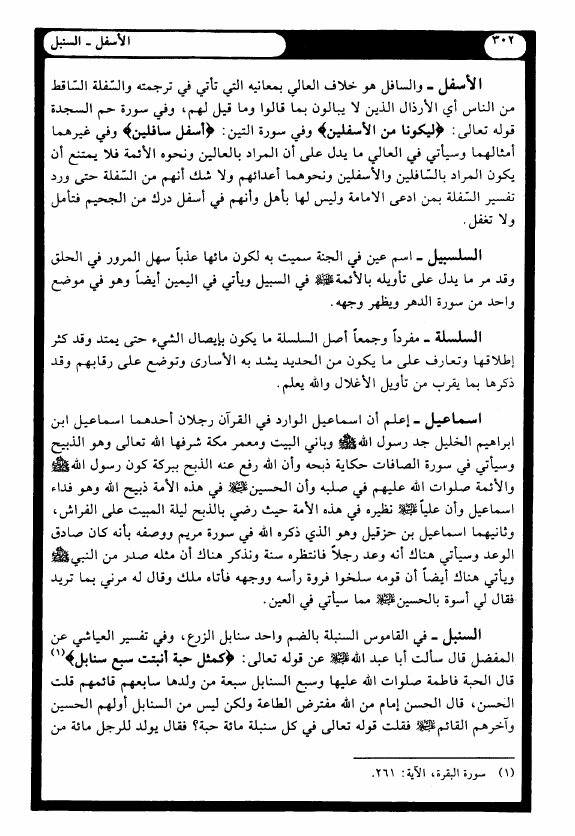 ٣٠٢
الأسفل - السنبل
الأسفل - والسافل هو خلاف العالي بمعانيه التي تأتي في ترجمته والسّفلة السّاقط
من الناس أي الأرذال الذين لا يبالون بما قالوا وما قيل لهم، وفي سورة حم السجدة
قوله تعالى: ﴿ليكونا من الأسفلين﴾ وفي سورة التين: ﴿أسفل سافلين﴾ وفي غيرهما
أمثالهما وسيأتي في العالي ما يدل على أن المراد بالعالين ونحوه الأئمة فلا يمتنع أن
يكون المراد بالسّافلين والأسفلين ونحوهما أعدائهم ولا شك أنهم من السّفلة حتى ورد
تفسير السّفلة بمن ادعى الامامة وليس لها بأهل وأنهم في أسفل درك من الجحيم فتأمل
ولا تغفل.
السلسبيل - اسم عين في الجنة سميت به لكون مائها عذباً سهل المرور في الحلق
وقد مر ما يدل على تأويله بالأئمة عليهم السلام في السبيل ويأتي في اليمين أيضاً وهو في موضع
واحد من سورة الدهر ويظهر وجهه.
السلسلة - مفرداً وجمعاً أصل السلسلة ما يكون بإيصال الشيء حتى يمتد وقد كثر
إطلاقها وتعارف على ما يكون من الحديد يشد به الأسارى وتوضع على رقابهم وقد
ذكرها بما يقرب من تأويل الأغلال والله يعلم.
اسماعيل - إعلم أن اسماعيل الوارد في القرآن رجلان أحدهما اسماعيل ابن
ابراهيم الخليل جد رسول الله ﷺ وباني البيت ومعمر مكة شرفها الله تعالى وهو الذبيح
وسيأتي في سورة الصافات حكاية ذبحه وأن الله رفع عنه الذبح ببركة كون رسول الله ﷺ
والأئمة صلوات الله عليهم في صلبه وأن الحسين عليه السلام في هذه الأمة ذبيح الله وهو فداء
اسماعيل وأن علياً عليه السلام نظيره في هذه الأمة حيث رضي بالذبح ليلة المبيت على الفراش،
وثانيهما اسماعيل بن حزقيل وهو الذي ذكره الله في سورة مريم ووصفه بأنه كان صادق
الوعد وسيأتي هناك أنه وعد رجلاً فانتظره سنة ونذكر هناك أن مثله صدر من النبي ﷺ
ويأتي هناك أيضاً أن قومه سلخوا فروة رأسه ووجهه فأتاه ملك وقال له مرني بما تريد
فقال لي أسوة بالحسين عليه السلام مما سيأتي في العين.
السنبل - في القاموس السنبلة بالضم واحد سنابل الزرع، وفي تفسير العياشي عن
المفضل قال سألت أبا عبد الله عليه السلام عن قوله تعالى: ﴿كمثل حبة أنبتت سبع سنابل﴾(١)
قال الحبة فاطمة صلوات الله عليها وسبع السنابل سبعة من ولدها سابعهم قائمهم قلت
الحسن، قال الحسن إمام من الله مفترض الطاعة ولكن ليس من السنابل أولهم الحسين
وآخرهم القائم عليه السلام فقلت قوله تعالى في كل سنبلة مائة حبة؟ فقال يولد للرجل مائة من
(١) سورة البقرة، الآية: ٢٦١.